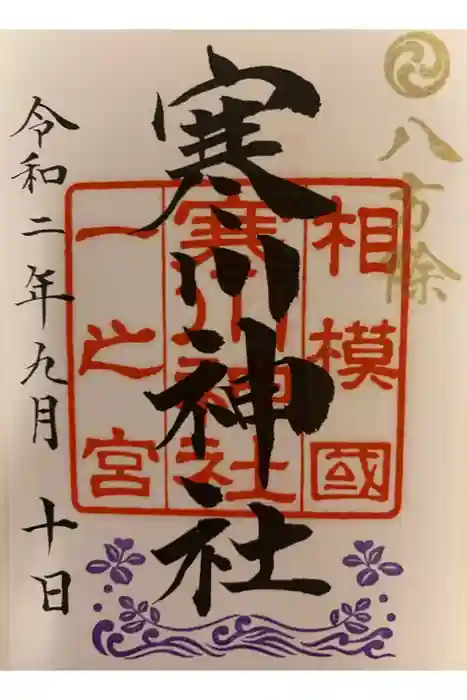 八方除
寒川神社
相模國
寒川神社
一之宮
令和二年九月十日